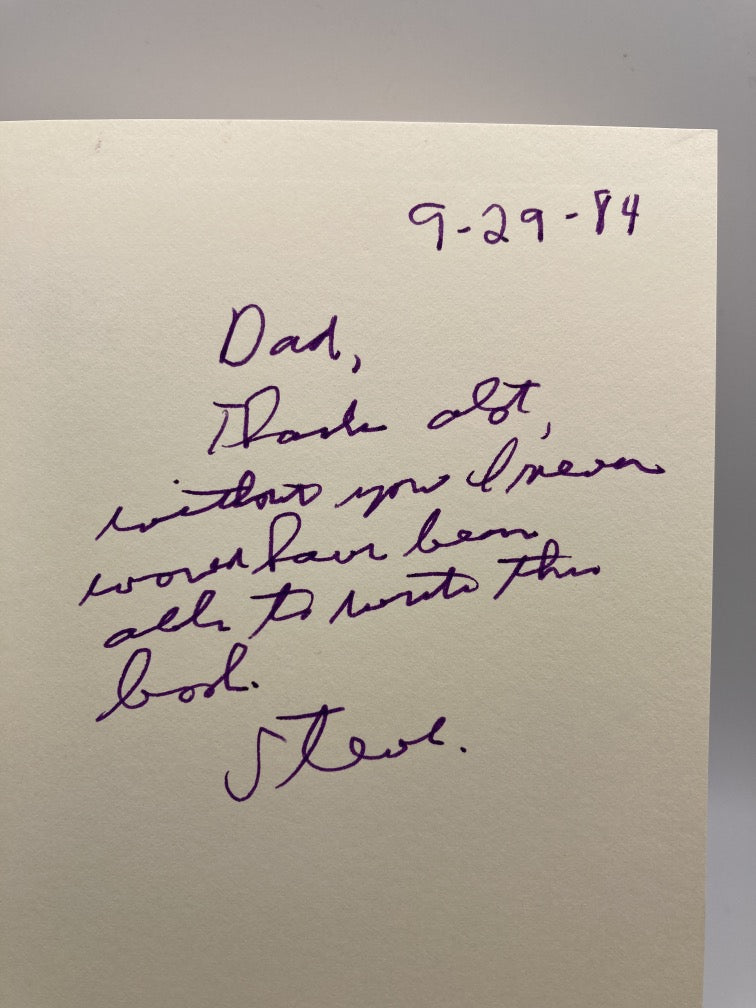 9-29-84
Dad,
Thanks alot,
without you I never
would have been
able to write this
book.
Steve.